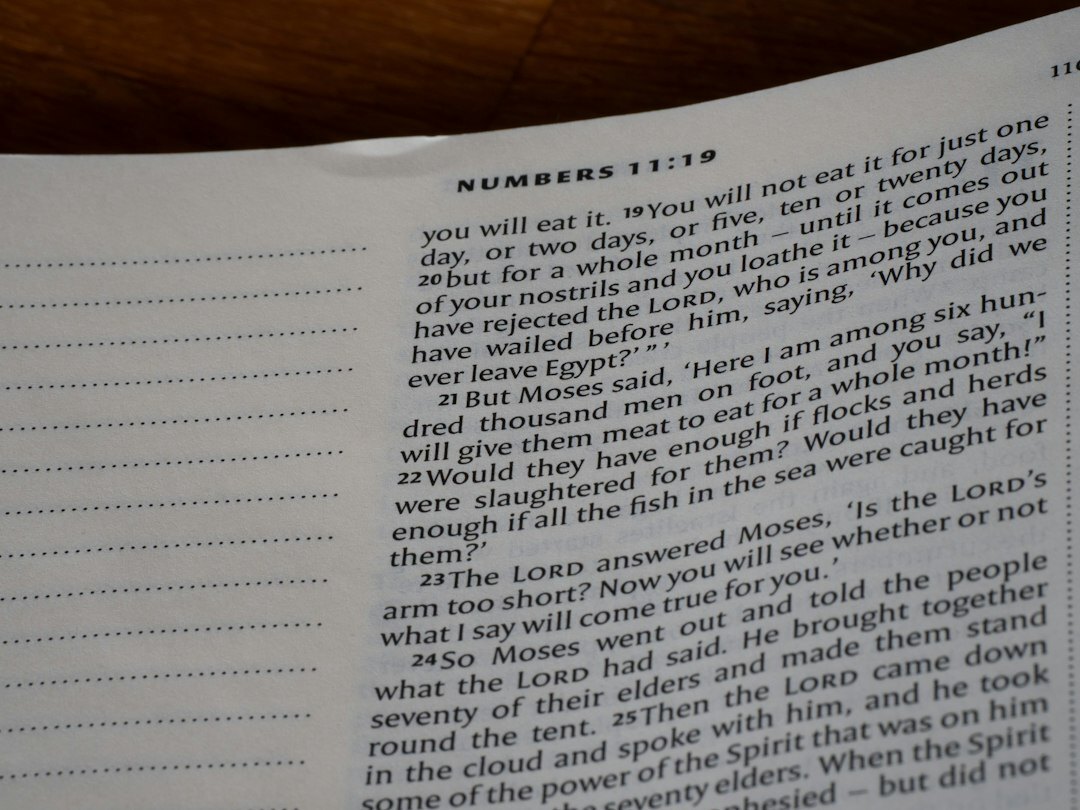 NUMBERS 11:19
you will eat it. 19You will not eat it for just one
day, or two days, or five, ten or twenty days,
20but for a whole month – until it comes out
of your nostrils and you loathe it – because you
have rejected the LORD, who is among you, and
have wailed before him, saying, ‘Why did we
ever leave Egypt?’ ” ’
21 But Moses said, ‘Here I am among six hun-
dred thousand men on foot, and you say, “I
will give them meat to eat for a whole month!”
22Would they have enough if flocks and herds
were slaughtered for them? Would they have
enough if all the fish in the sea were caught for
them?’
23The LORD answered Moses, ‘Is the LORD’s
arm too short? Now you will see whether or not
what I say will come true for you.’
24So Moses went out and told the people
what the LORD had said. He brought together
seventy of their elders and made them stand
round the tent. 25Then the LORD came down
in the cloud and spoke with him, and he took
some of the power of the Spirit that was on him
the seventy elders. When the Spirit
– but did not